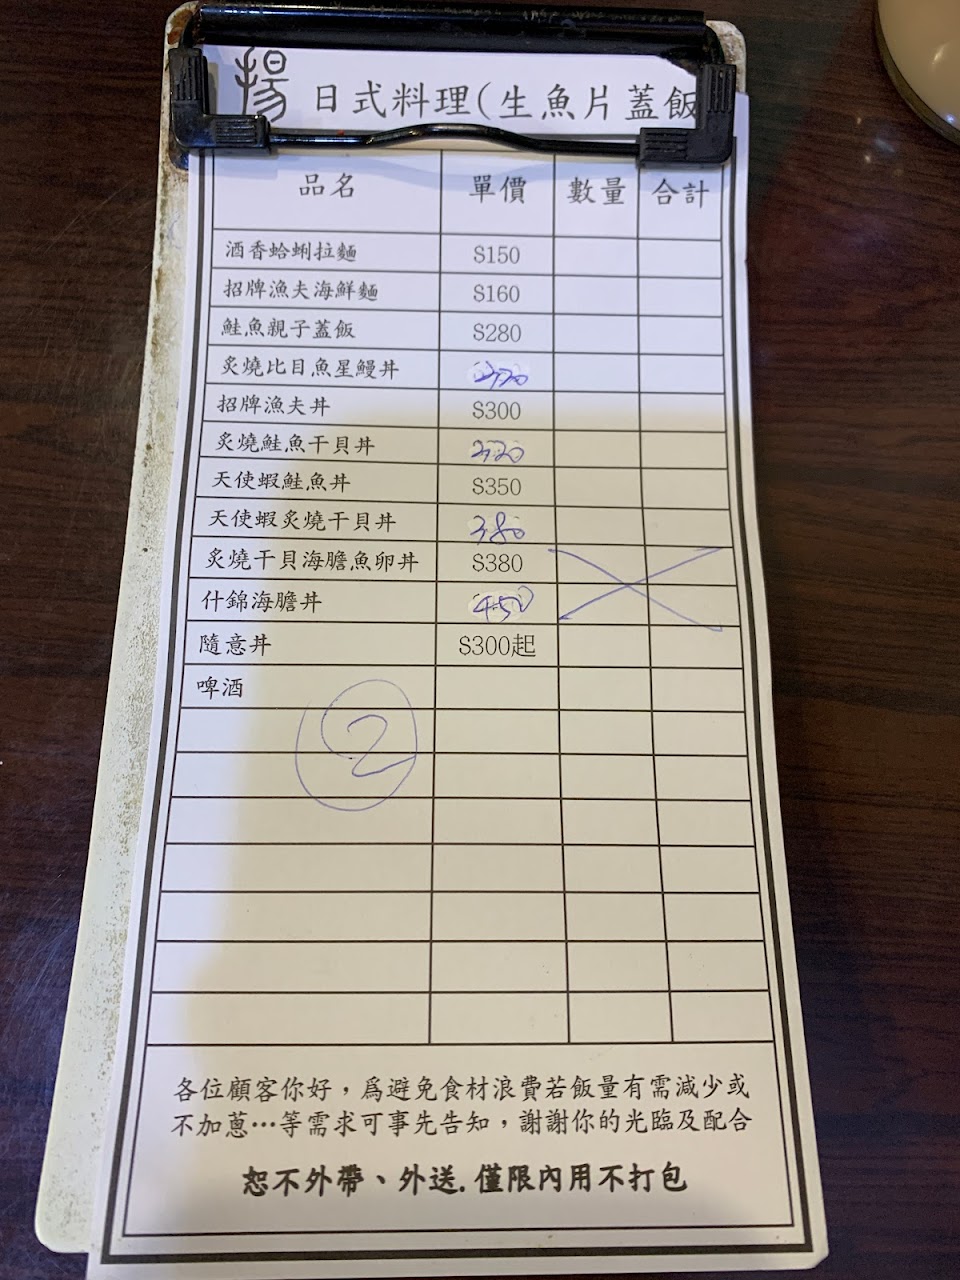 揚 日式料理(生魚片蓋飯
品名 單價 數量 合計
酒香蛤蜊拉麵 $150
招牌漁夫海鮮麵 $160
鮭魚親子蓋飯 $280
炙燒比目魚星鰻丼
招牌漁夫丼 $300
炙燒鮭魚干貝丼
天使蝦鮭魚丼 $350
天使蝦炙燒干貝丼 380
炙燒干貝海膽魚卵丼 $380
什錦海膽丼 450
隨意丼 $300起
啤酒
2
各位顧客你好,為避免食材浪費若飯量有需減少或
不加蔥…等需求可事先告知,謝謝你的光臨及配合
恕不外帶、外送.僅限內用不打包